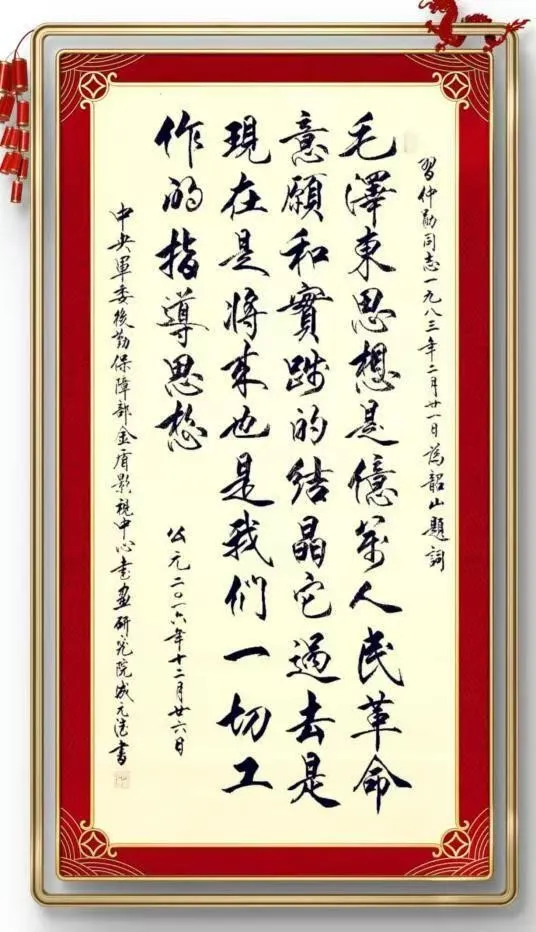 習仲勛同志一九八三年二月廿一日為韶山題詞
毛澤東思想是億萬人民革命
意願和實踐的结晶它過去是
現在是將来也是我们一切工
作的指導思想
公元二〇一六年十二月廿六日
中央軍委後勤保障部金盾影視中心書畫研究院成元法書